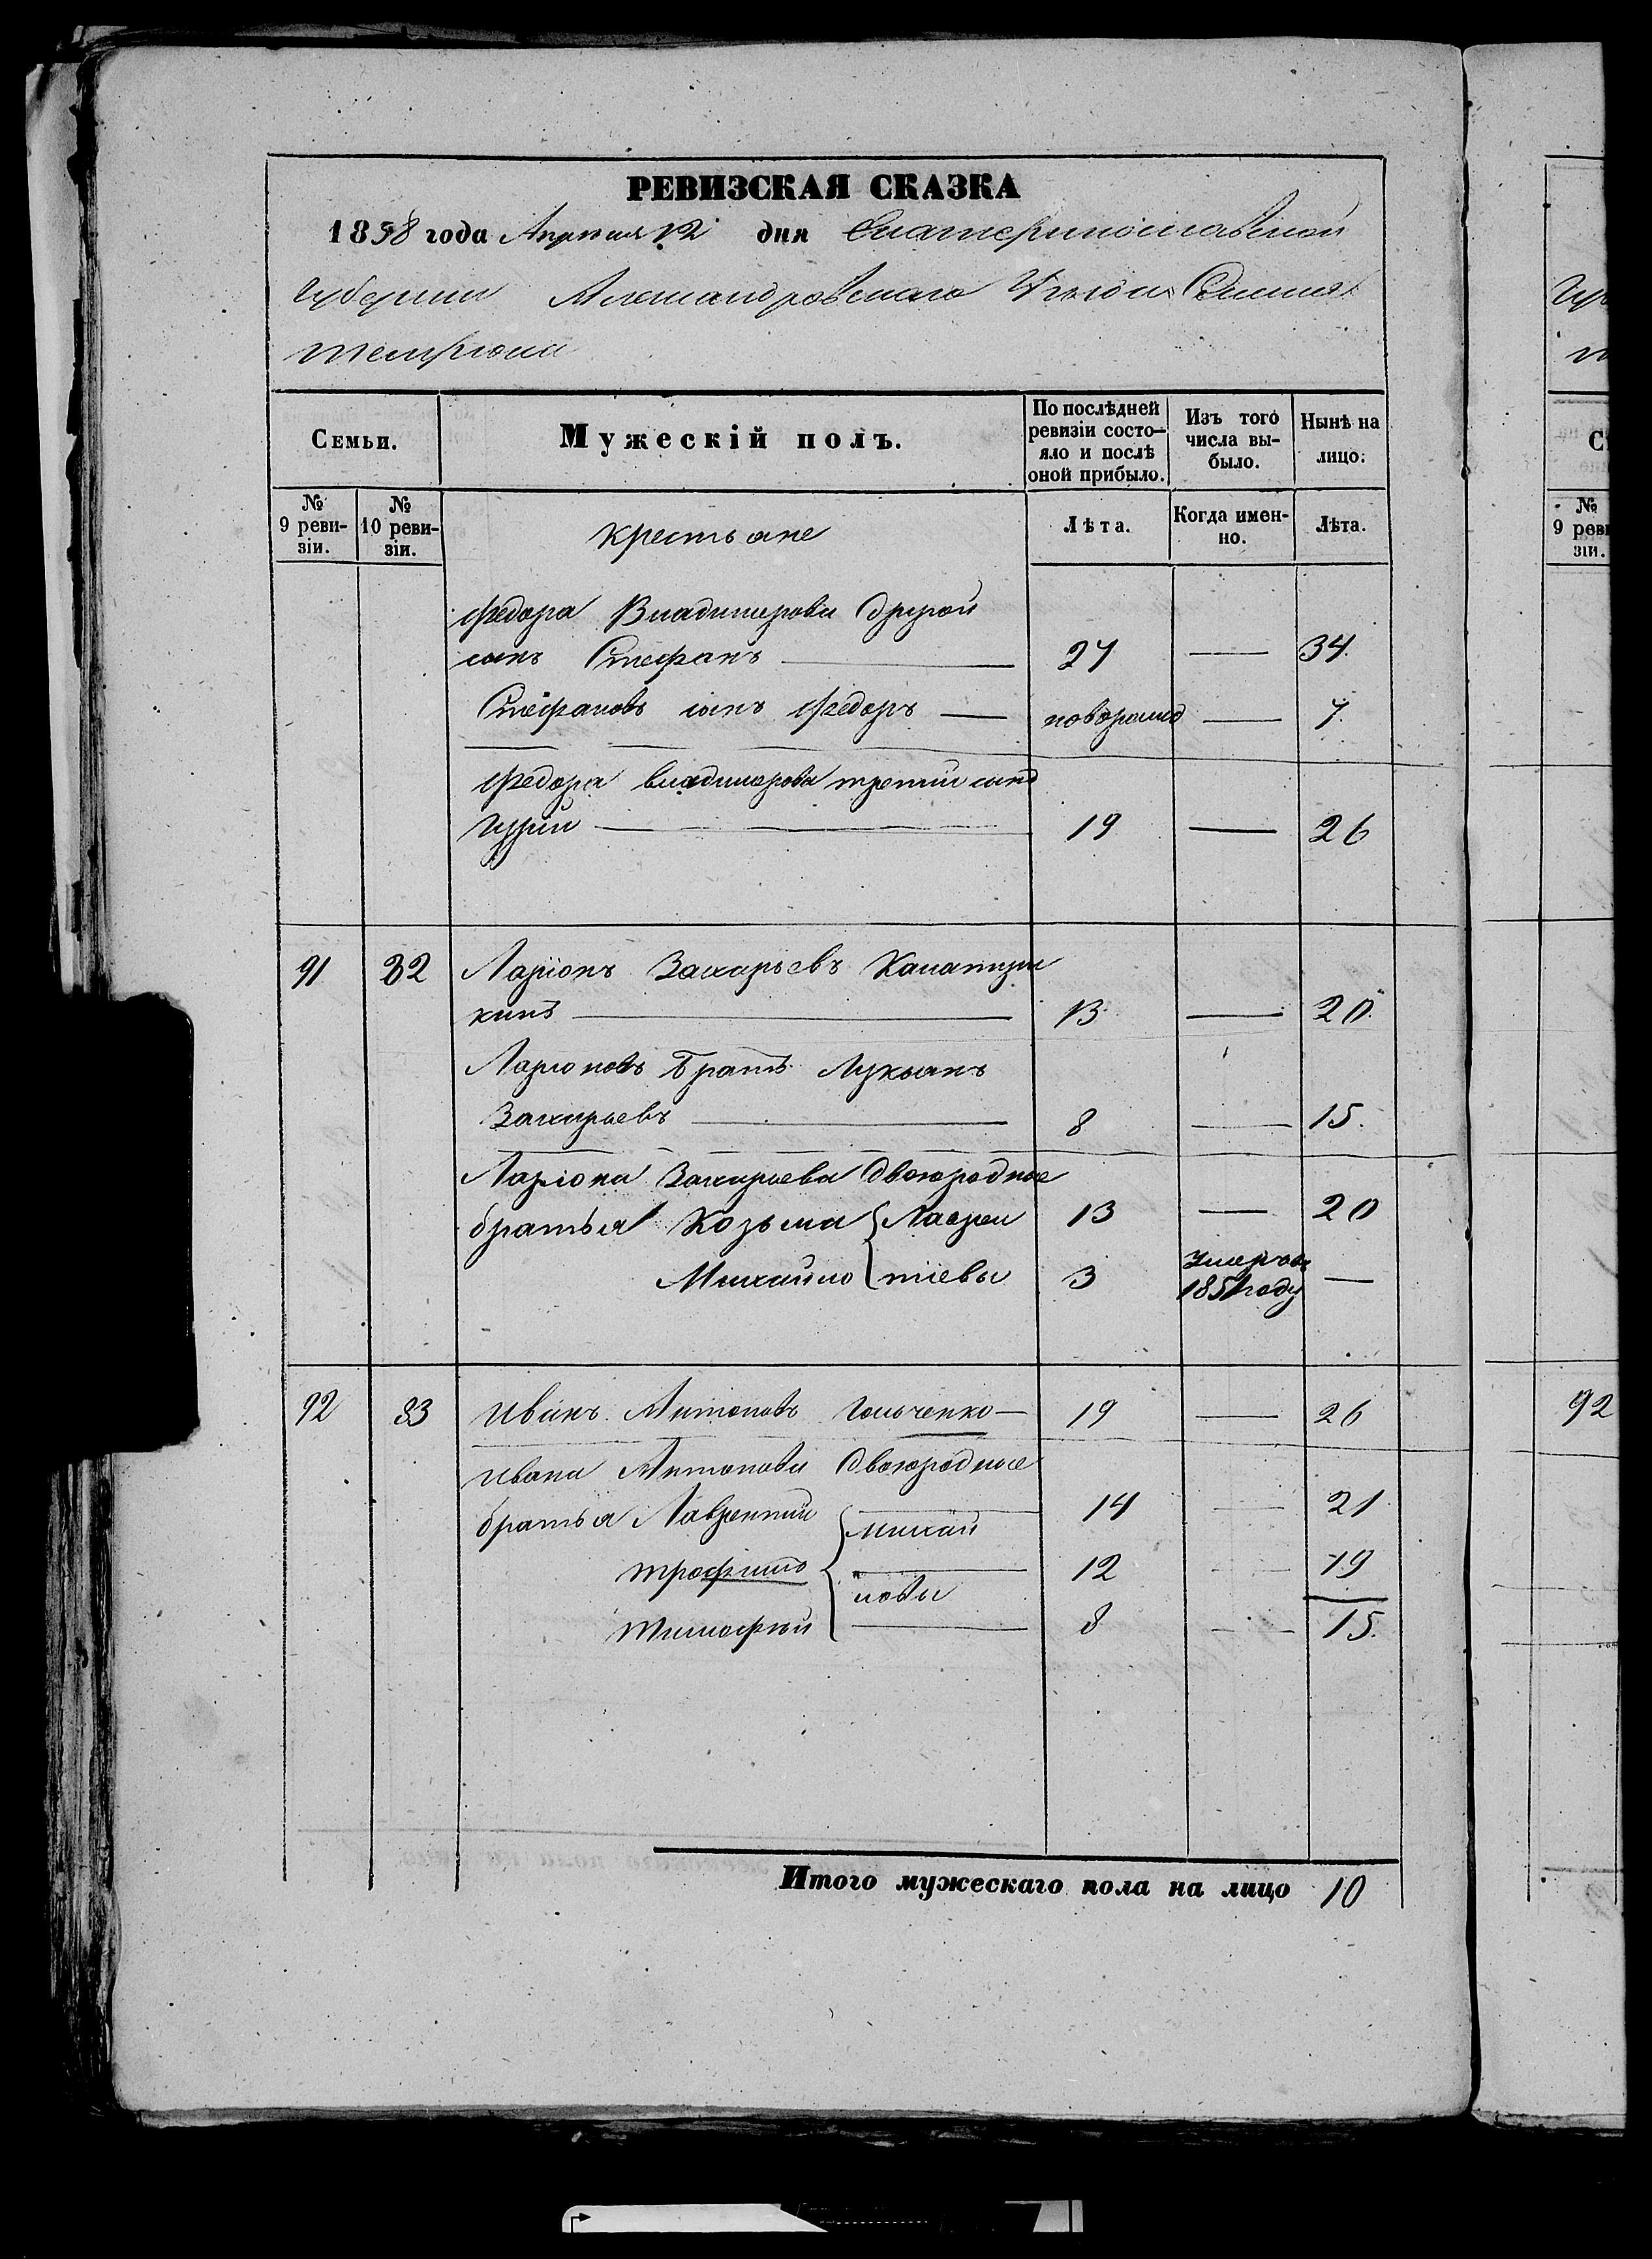 РЕВИЗСКАЯ СКАЗКА
1858 года Апреля 12 дня Екатеринославской
Губернии Александровского Уезда Селения
Темрюка
Семьи.
Мужескій полъ.
По послѣдней ревизіи состо-яло и послѣ оной прибыло.
Изъ того числа вы-было.
Нынѣ на лицо.
№ 9 реви-зіи.
№ 10 реви-зіи.
Крестьяне
Лѣта.
Когда имен-но.
Лѣта.
Федора Владимерова другой
сынъ Стефанъ 27 — 34.
Стефановъ сынъ Федоръ — новорожд — 7.
Федора Владимерова третий сынъ
Гурий — 19 — 26
91 82 Ларіонъ Захарьевъ Калатур
кинъ 13 — 20.
Ларіоновъ братъ Лукьянъ
Захарьевъ 8 — 15.
Ларіона Захарьева двоюродные
братья Козьма Лаврен 13 — 20
Михайло тіевы 3 Умеръ въ 1851 году —
92 83 Иванъ Антоновъ Гольченко — 19 — 26
Ивана Антонова двоюродные
братья Лаврентій Михай 14 — 21
Трофимъ 12 — 19
ловы
Тимофѣй 8 — 15.
Итого мужескаго пола на лицо 10
С
№
9 реви
зіи.
92